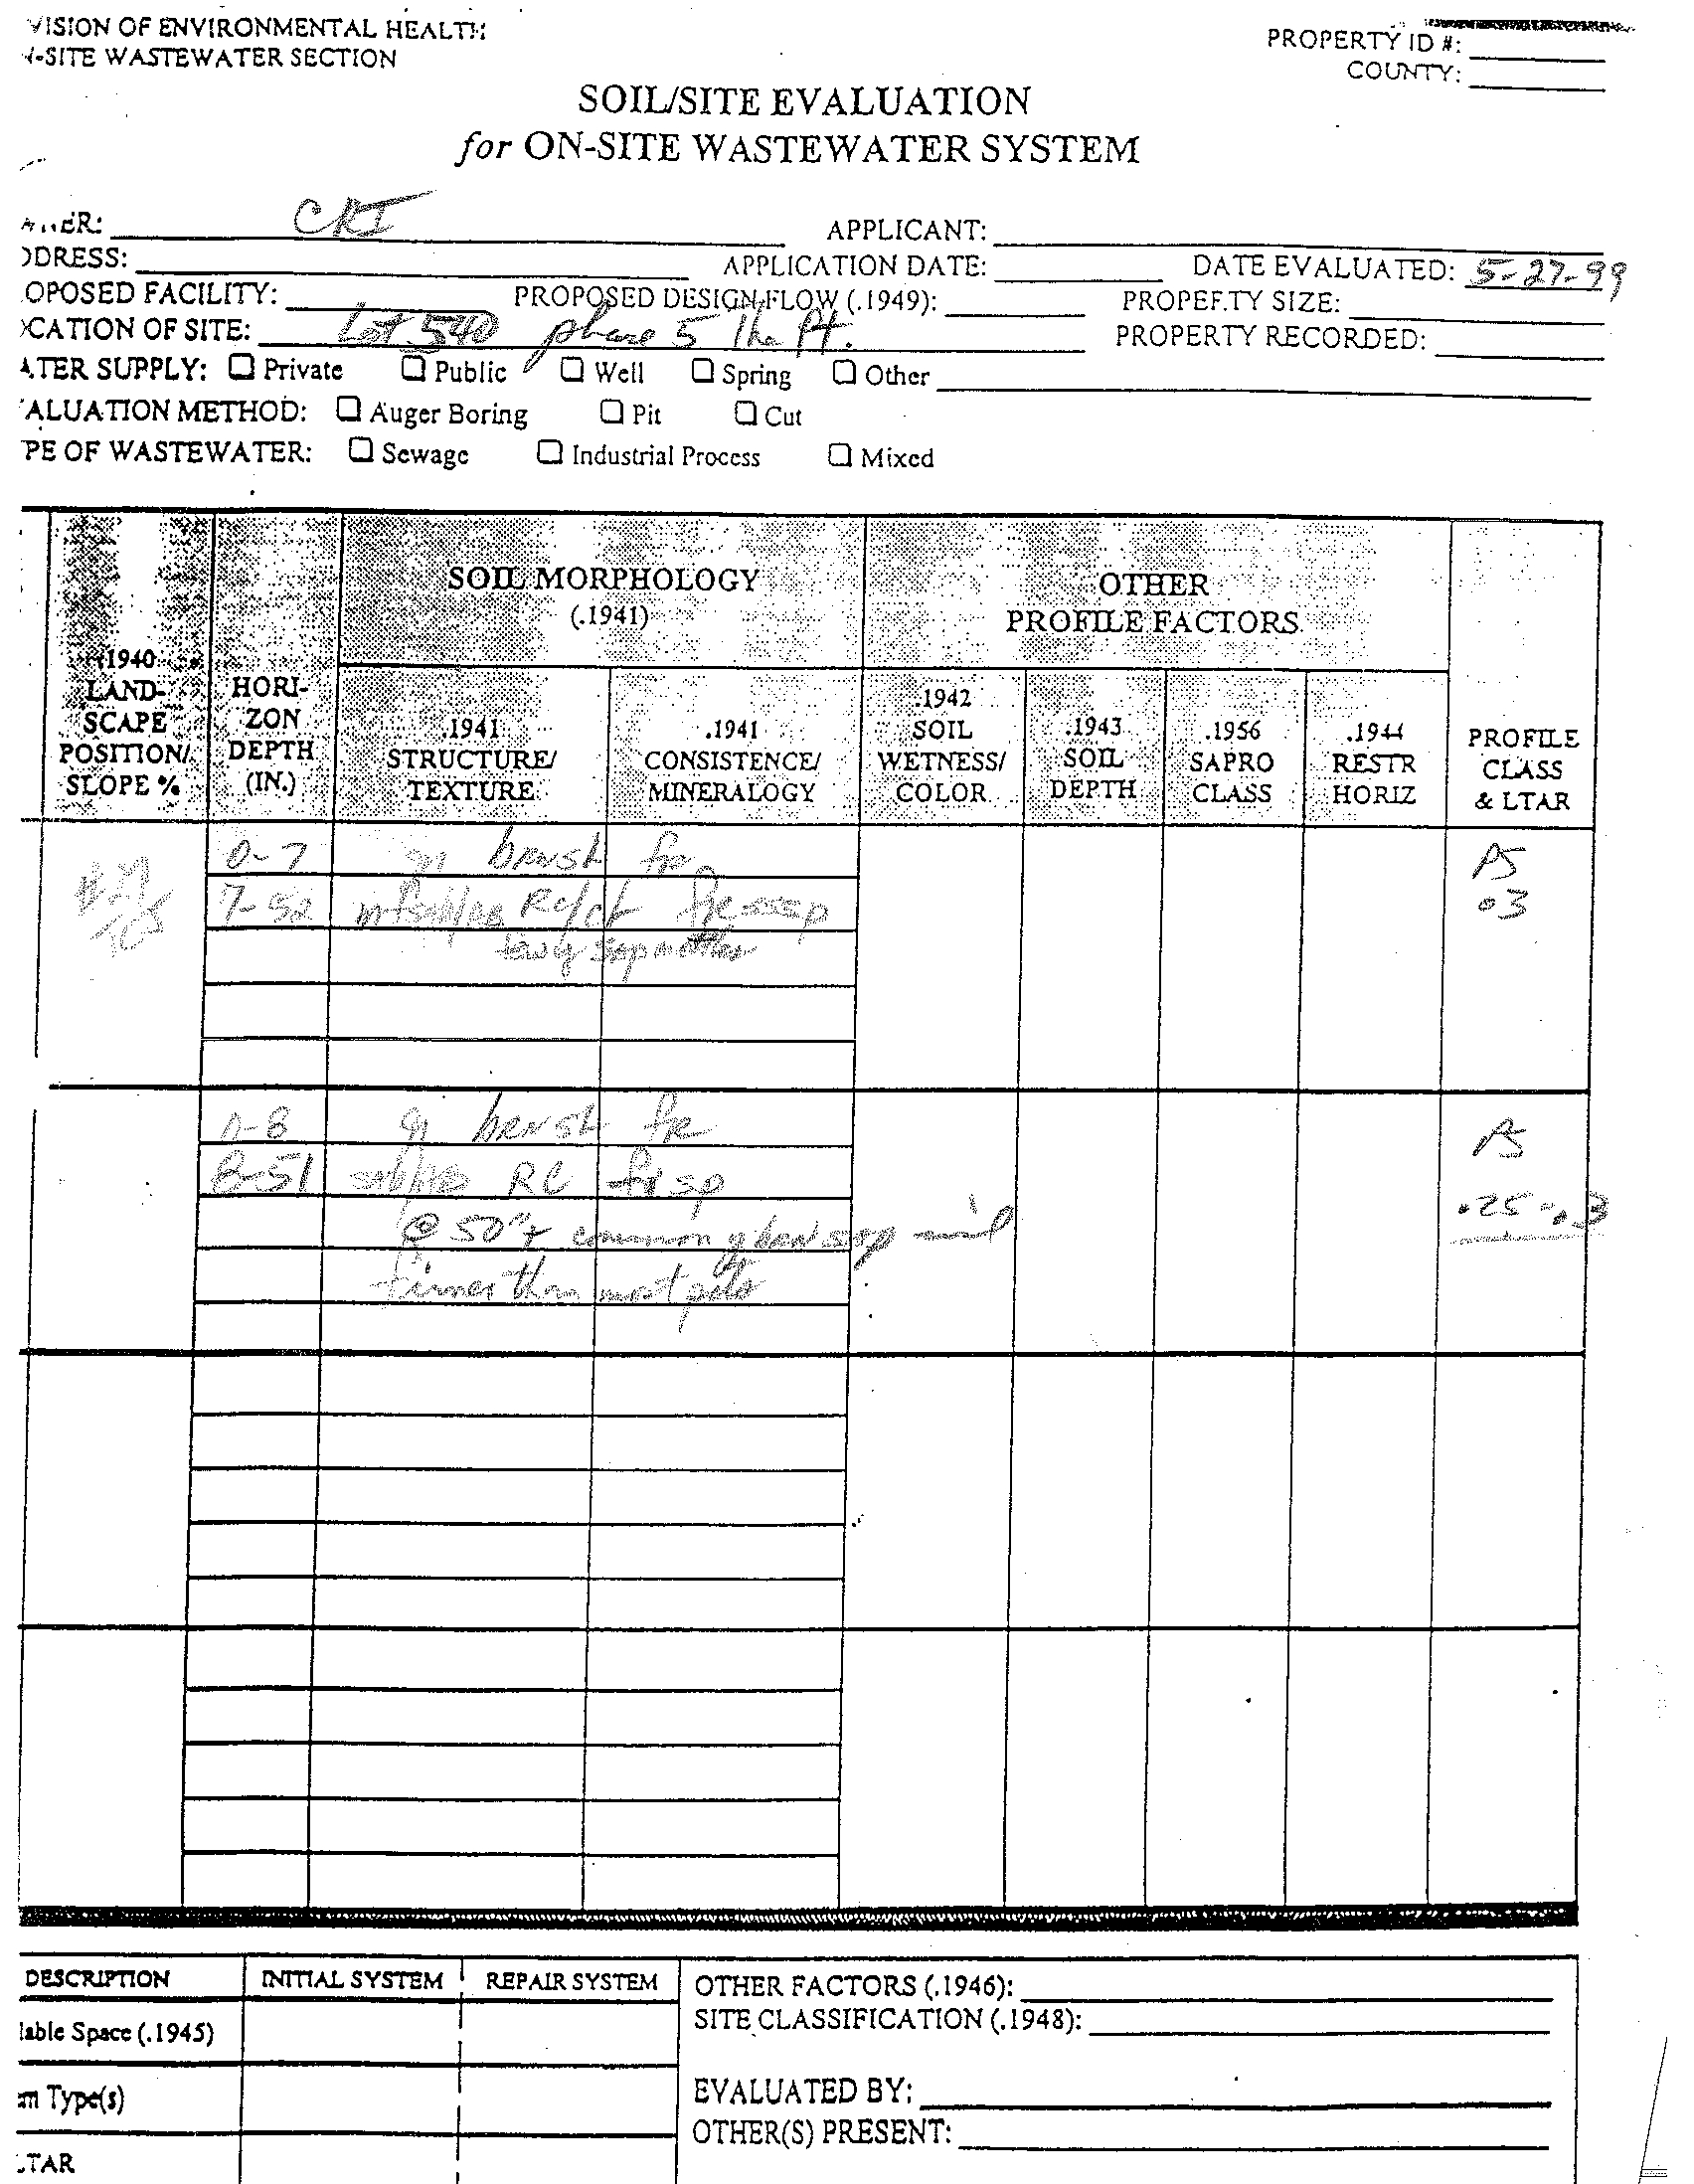 VISION OF ENVIRONMENTAL HEALTH
-SITE WASTEWATER SECTION
PROPERTY ID #:
COUNTY:
SOIL/SITE EVALUATION
for ON-SITE WASTEWATER SYSTEM
ER: CRI APPLICANT:
DDRESS: APPLICATION DATE: DATE EVALUATED: 5-27-99
OPOSED FACILITY: PROPOSED DESIGN FLOW (.1949): PROPERTY SIZE:
CATION OF SITE: Lot 540 phase 5 The Pt. PROPERTY RECORDED:
ATER SUPPLY: Private Public Well Spring Other
ALUATION METHOD: Auger Boring Pit Cut
PE OF WASTEWATER: Sewage Industrial Process Mixed
SOIL MORPHOLOGY
(.1941)
OTHER
PROFILE FACTORS
.1940
LAND-
SCAPE
POSITION/
SLOPE %
HORI-
ZON
DEPTH
(IN.)
.1941
STRUCTURE/
TEXTURE
.1941
CONSISTENCE/
MINERALOGY
.1942
SOIL
WETNESS/
COLOR
.1943
SOIL
DEPTH
.1956
SAPRO
CLASS
.1944
RESTR
HORIZ
PROFILE
CLASS
& LTAR
0-7 brnsl fr PS
7-52 fr sssp .3
0-8 brnsl fr PS
8-51 RC fr sp .25-.3
@ 50"+ common
firmer than most
DESCRIPTION INITIAL SYSTEM REPAIR SYSTEM OTHER FACTORS (.1946):
lable Space (.1945) SITE CLASSIFICATION (.1948):
em Type(s) EVALUATED BY:
OTHER(S) PRESENT:
LTAR